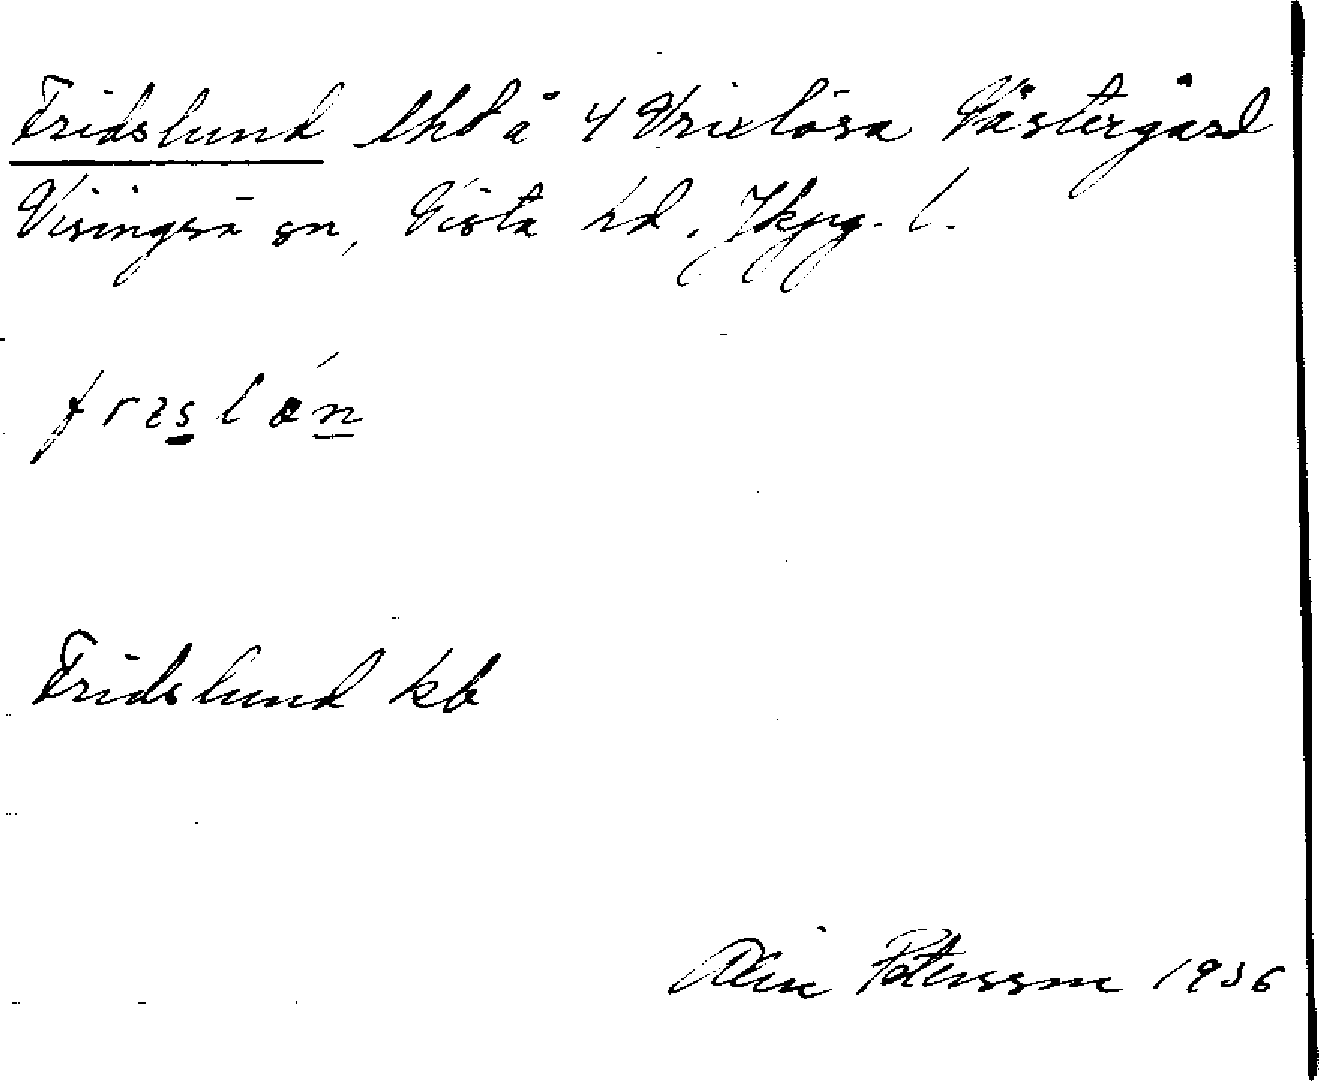 Fridslund lht å 4 Vrixlösa Västergård
Visingsö sn, Vista hd. Jkpg. l.
Fridslund kb
Petersson 1936